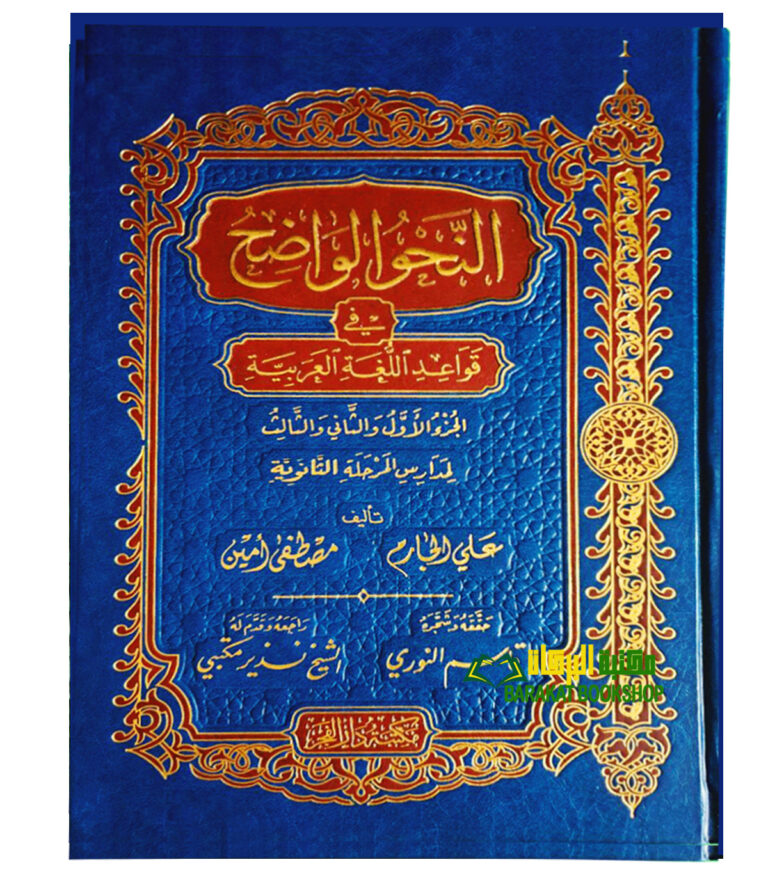 النَّحْوُ الوَاضِحُ
فِي
قَوَاعِدِ اللُّغَةِ العَرَبِيَّةِ
الجُزْءُ الأَوَّلُ وَالثَّانِي وَالثَّالِثُ
لِمَدَارِسِ المَرْحَلَةِ الثَّانَوِيَّةِ
تأليف
عَلي الجَارم مصْطفى أمين
حَقَّقَهُ وَشَجَّرَهُ رَاجَعَهُ وَقَدَّمَ لَهُ
النوري الشيخ نذير مكتبي
مكتبة البركات
BARAKAT BOOKSHOP
مكتبة دار الفجر